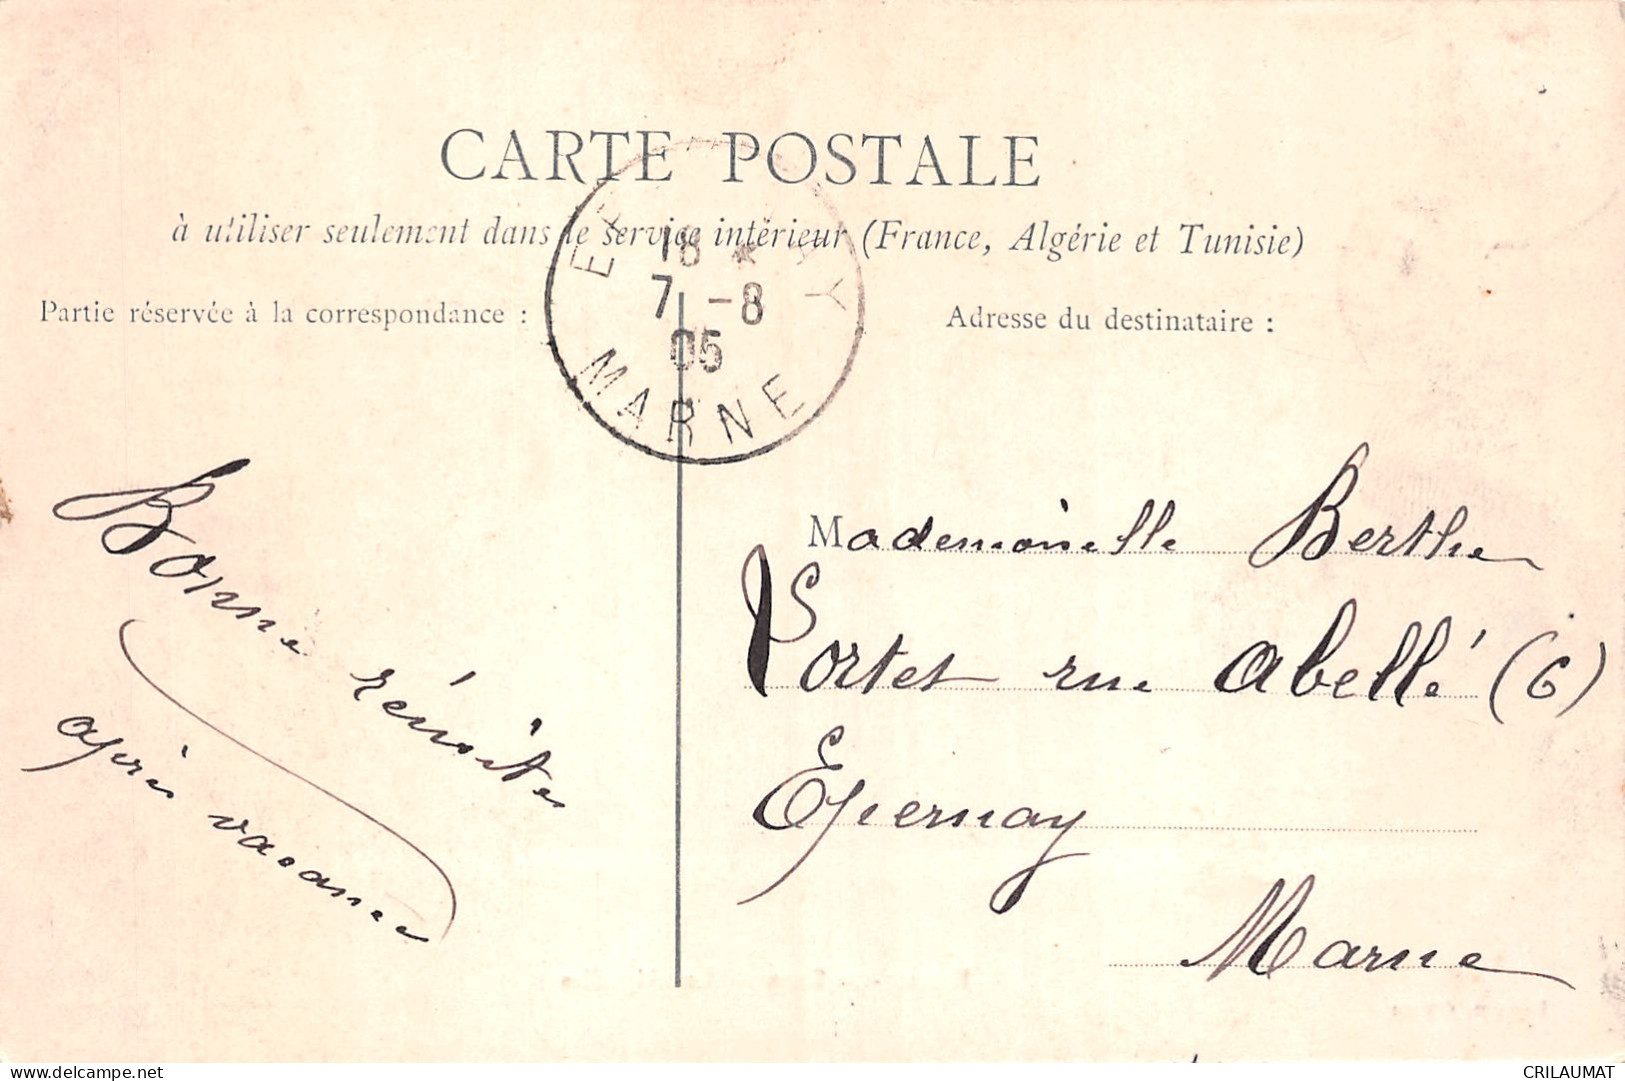 CARTE POSTALE
à utiliser seulement dans le service intérieur (France, Algérie et Tunisie)
Partie réservée à la correspondance :
Adresse du destinataire :
18 *
7 -8
05
MARNE
Bonne réusite
après vacance
Mademoiselle Berthe
Portet rue Abellé (6)
Epernay
Marne
delcampe.net
CRILAUMAT